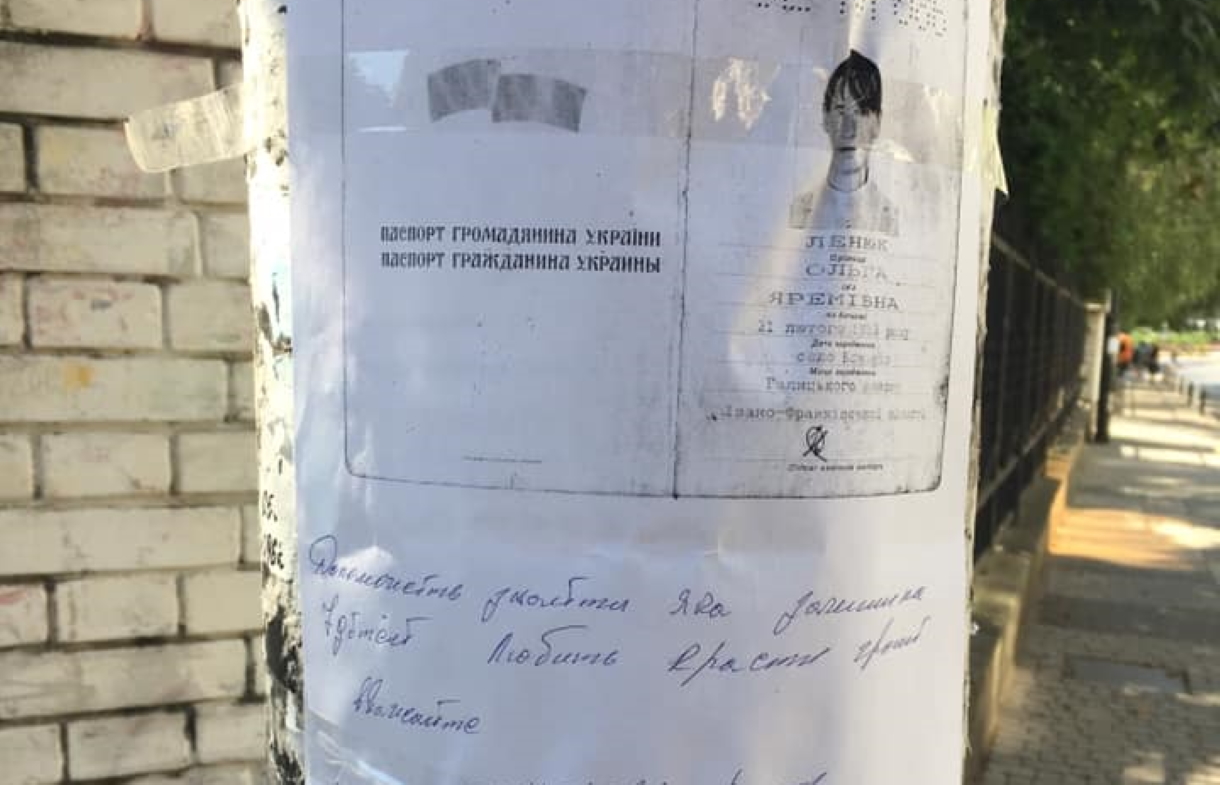 ПАСПОРТ ГРОМАДЯНИНА УКРАЇНИ
ПАСПОРТ ГРАЖДАНИНА УКРАИНЫ
ЛЕНЮК
Прізвище
ОЛЬГА
ім'я
ЯРЕМІВНА
по батькові
21 лютого
Дата народження
село
Місце народження
Галицького
Івано-Франківської області
Підпис власника паспорта
Допоможіть знайти Яка залишила
7 дітей Любить красти гроші
Вважайте